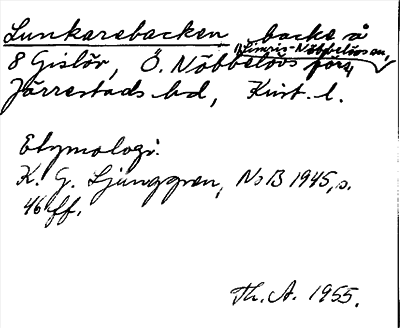 Lunkarebacken, backe å
Simris-Nöbbelövsav,
8 Gislöv, Ö. Nöbbelövs förs,
Järrestads hd, Krist. l.
Etymologi:
K. G. Ljunggren, NoB 1945, s.
46 ff.
Th. A. 1955.